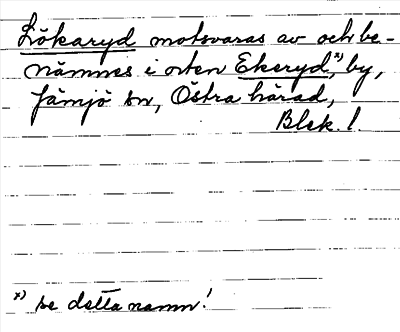 Lökaryd motsvaras av och be-
nämnes i orten Ekeryd,*) by,
Jämjö sn, Östra härad,
Blek. l.
*) se detta namn!